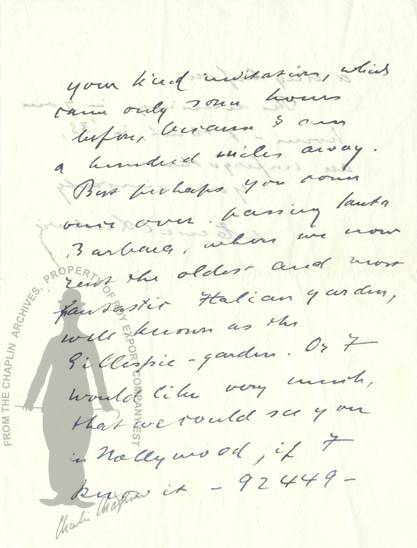 your kind invitation, which
came only some hours
before, because I am
a hundred miles away.
But perhaps you come
once over passing Santa
Barbara, where we now
rent the oldest and most
fantastic Italian garden,
well known as the
Gillespie-garden. Or I
would like very much,
that we could see you
in Hollywood, if I
know it - 92449 -
FROM THE CHAPLIN ARCHIVES, PROPERTY OF ROY EXPORT COMPANY EST
Charlie Chaplin